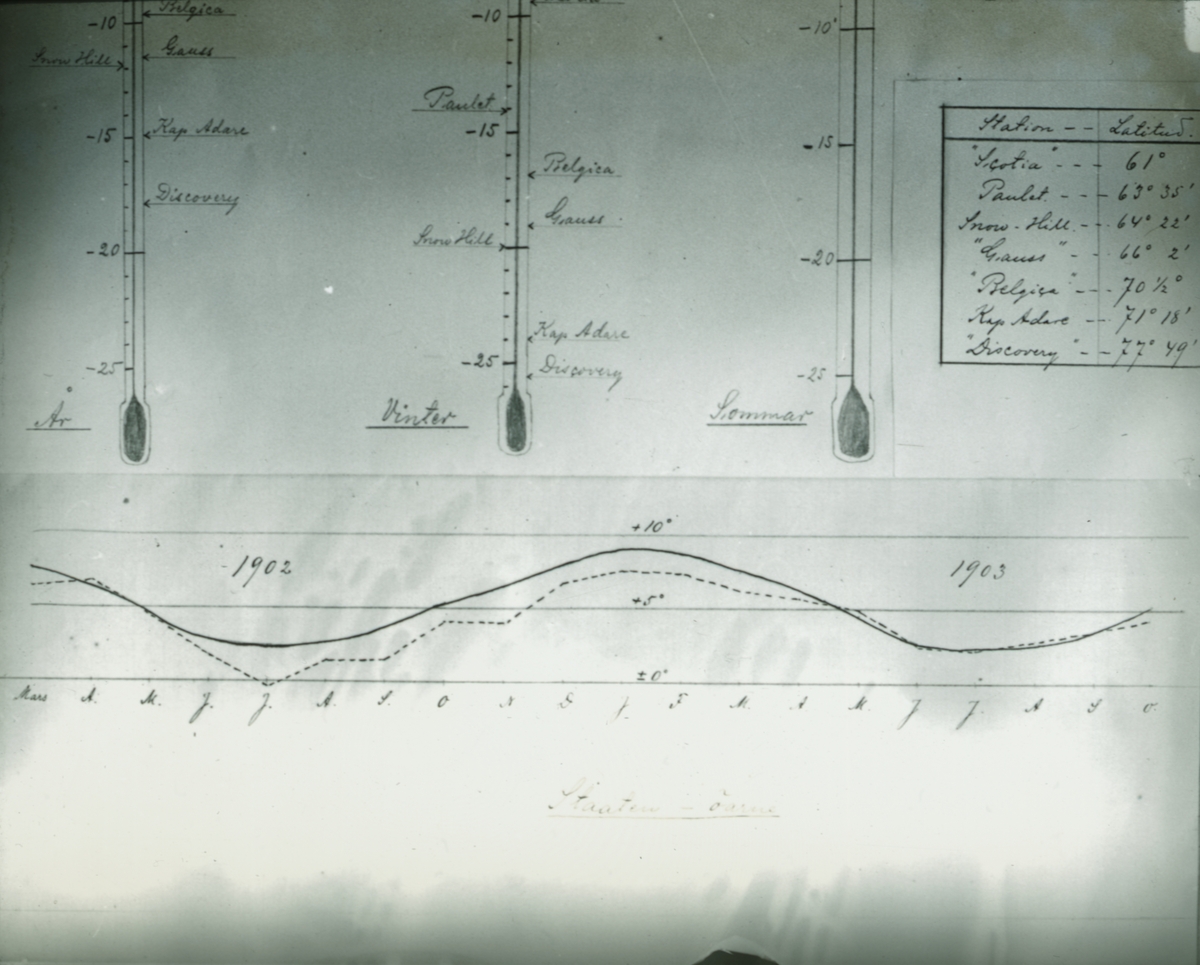 -10
Belgica
Snow Hill
Gauss
-15
Kap Adare
Discovery
-20
-25
År
-10
Paulet
-15
Belgica
Gauss
Snow Hill
Kap Adare
-25
Discovery
Vinter
-10°
-15
-20
-25
Sommar
Station -- Latitud.
"Scotia" --- 61°
Paulet. --- 63° 35'
Snow-Hill. --- 64° 22'
"Gauss" --- 66° 2'
"Belgica" --- 70 ½°
Kap Adare --- 71° 18'
"Discovery" --- 77° 49'
+10°
1902
1903
+5°
±0°
Mars A. M. J. J. A. S. O N D J. F M. A M. J J. A S O.
Staaten - öarne